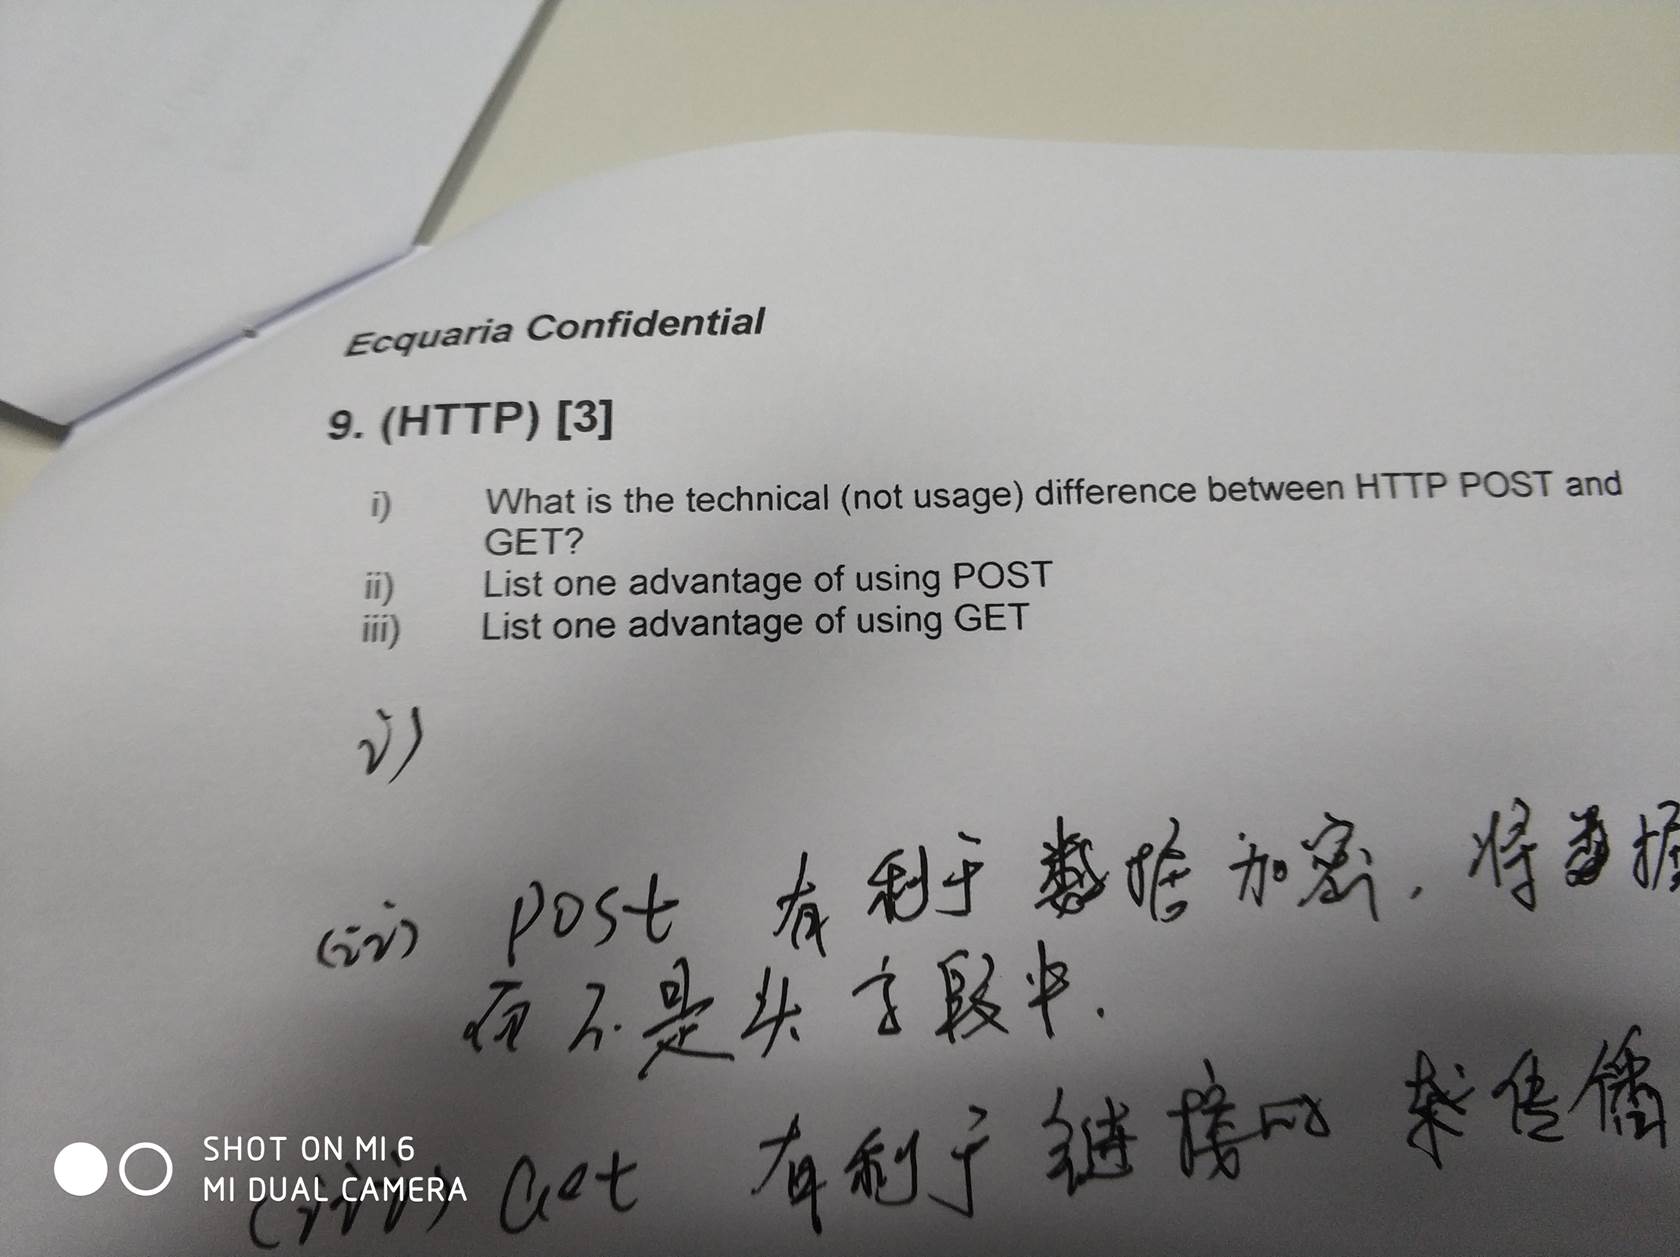 Ecquaria Confidential
9. (HTTP) [3]
i) What is the technical (not usage) difference between HTTP POST and
GET?
ii) List one advantage of using POST
iii) List one advantage of using GET
i)
(ii) post 有利于数据加密, 将数据
而不是头字段中.
(iii) Get 有利于链接的
SHOT ON MI 6
MI DUAL CAMERA